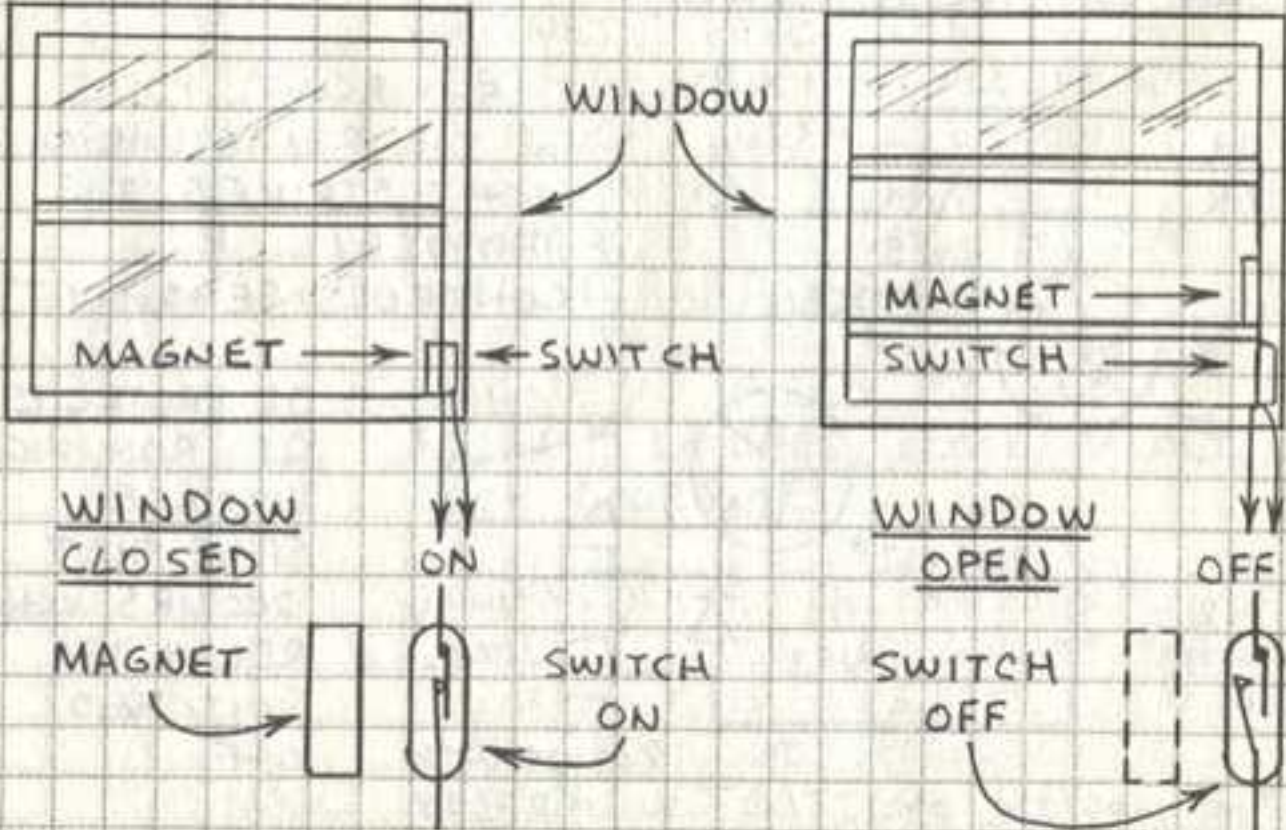 WINDOW
MAGNET
SWITCH
MAGNET
SWITCH
WINDOW
CLOSED
ON
WINDOW
OPEN
OFF
MAGNET
SWITCH
ON
SWITCH
OFF